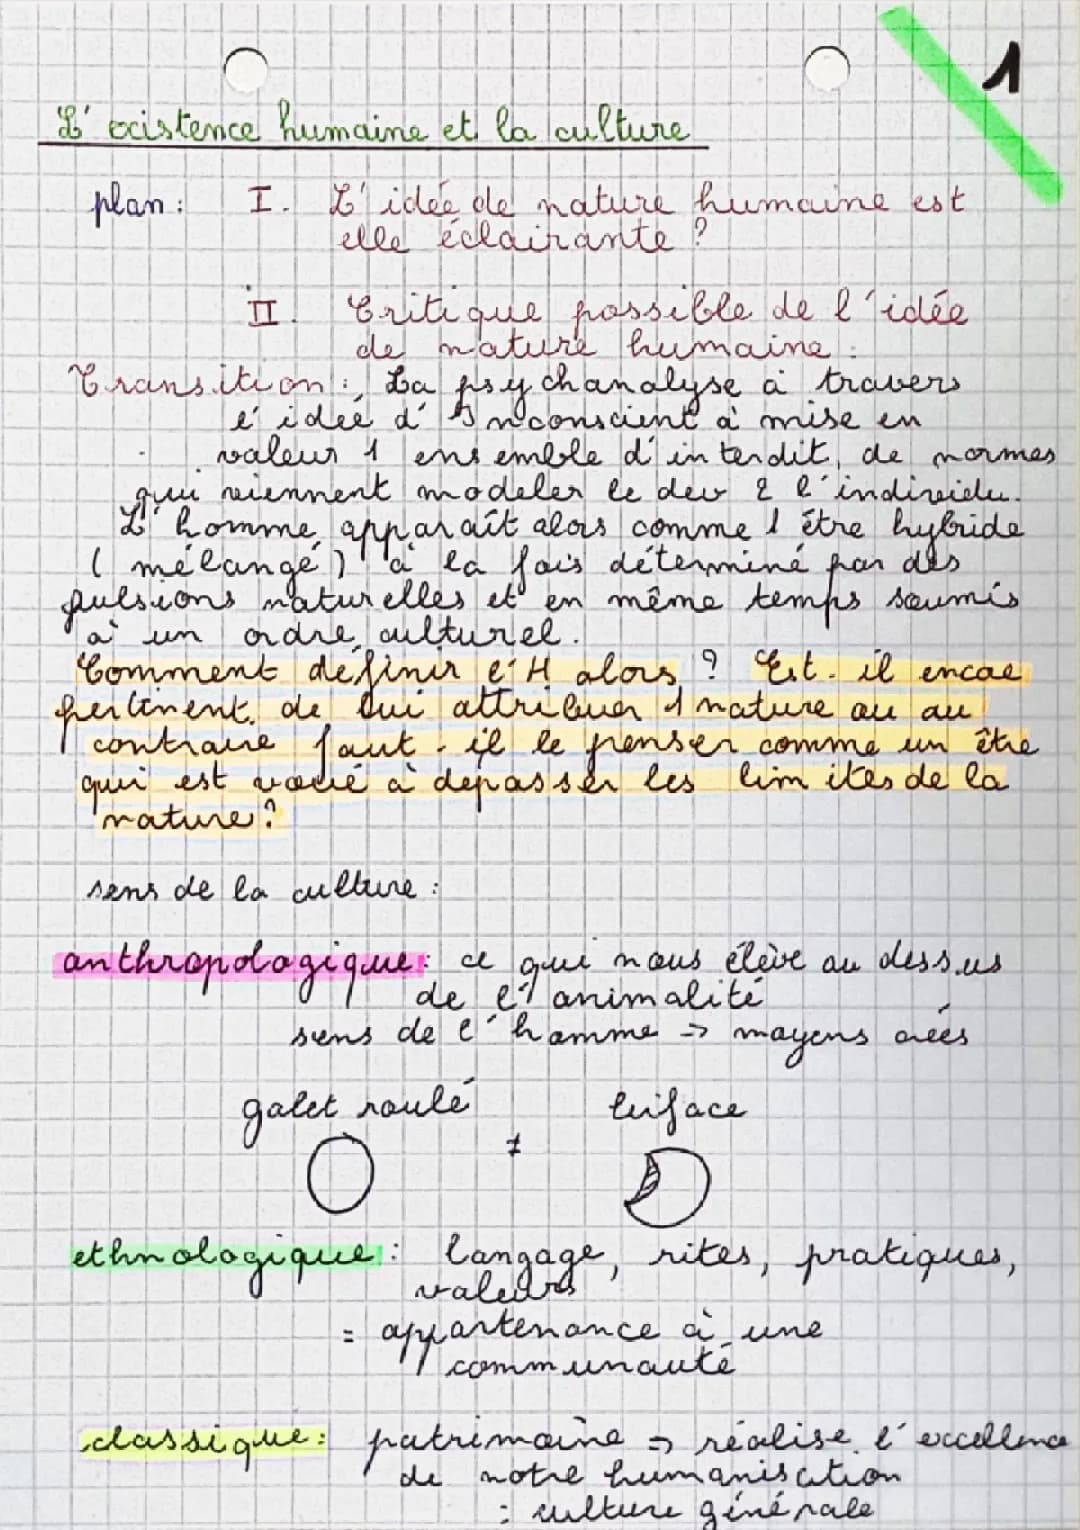 1
L'existence humaine et la culture
plan : I. L'idée de nature humaine est
elle éclairante ?
II. Critique possible de l'idée
de nature humaine :
Transition : La psychanalyse à travers
l'idée d'Inconscient à mise en
valeur 1 ensemble d'interdit, de normes
qui viennent modeler le dev & l'individu.
L'homme apparaît alors comme 1 être hybride
(mélangé) à la fois déterminé par des
pulsions naturelles et en même temps soumis
à un ordre culturel.
Comment définir l'H alors ? Est-il encore
pertinent de lui attribuer 1 nature ou au
contraire faut-il le penser comme un être
qui est voué à depasser les limites de la
nature ?
sens de la culture :
anthropologique : ce qui nous élève au dessus
de l'animalité
sens de l'homme → moyens créés
galet roulé ≠ biface
ethnologique : langage, rites, pratiques,
valeurs
= appartenance à une
communauté
classique : patrimoine → réalise l'excellence
de notre humanisation
: culture générale